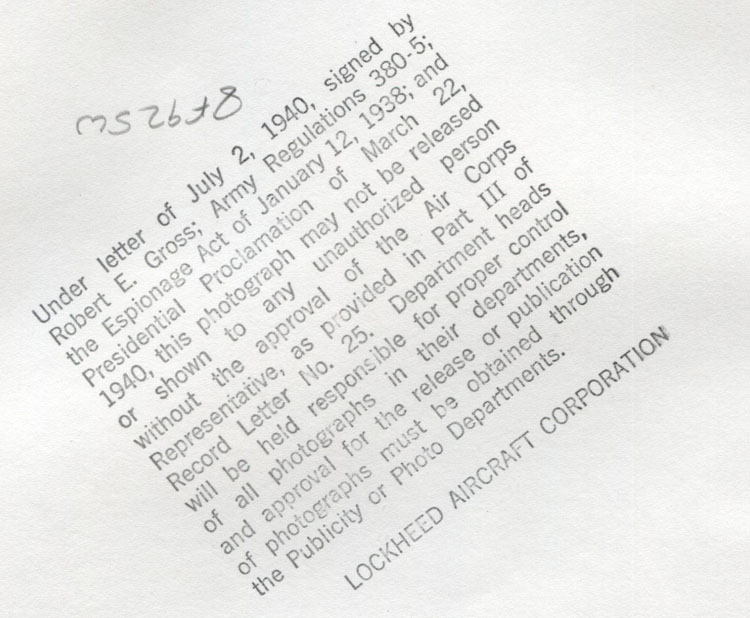 Under letter of July 2, 1940, signed by
Robert E. Gross; Army Regulations 380-5;
the Espionage Act of January 12, 1938; and
Presidential Proclamation of March 22,
1940, this photograph may not be released
or shown to any unauthorized person
without the approval of the Air Corps
Representative, as provided in Part III of
Record Letter No. 25. Department heads
will be held responsible for proper control
of all photographs in their departments,
and approval for the release or publication
of photographs must be obtained through
the Publicity or Photo Departments.
LOCKHEED AIRCRAFT CORPORATION